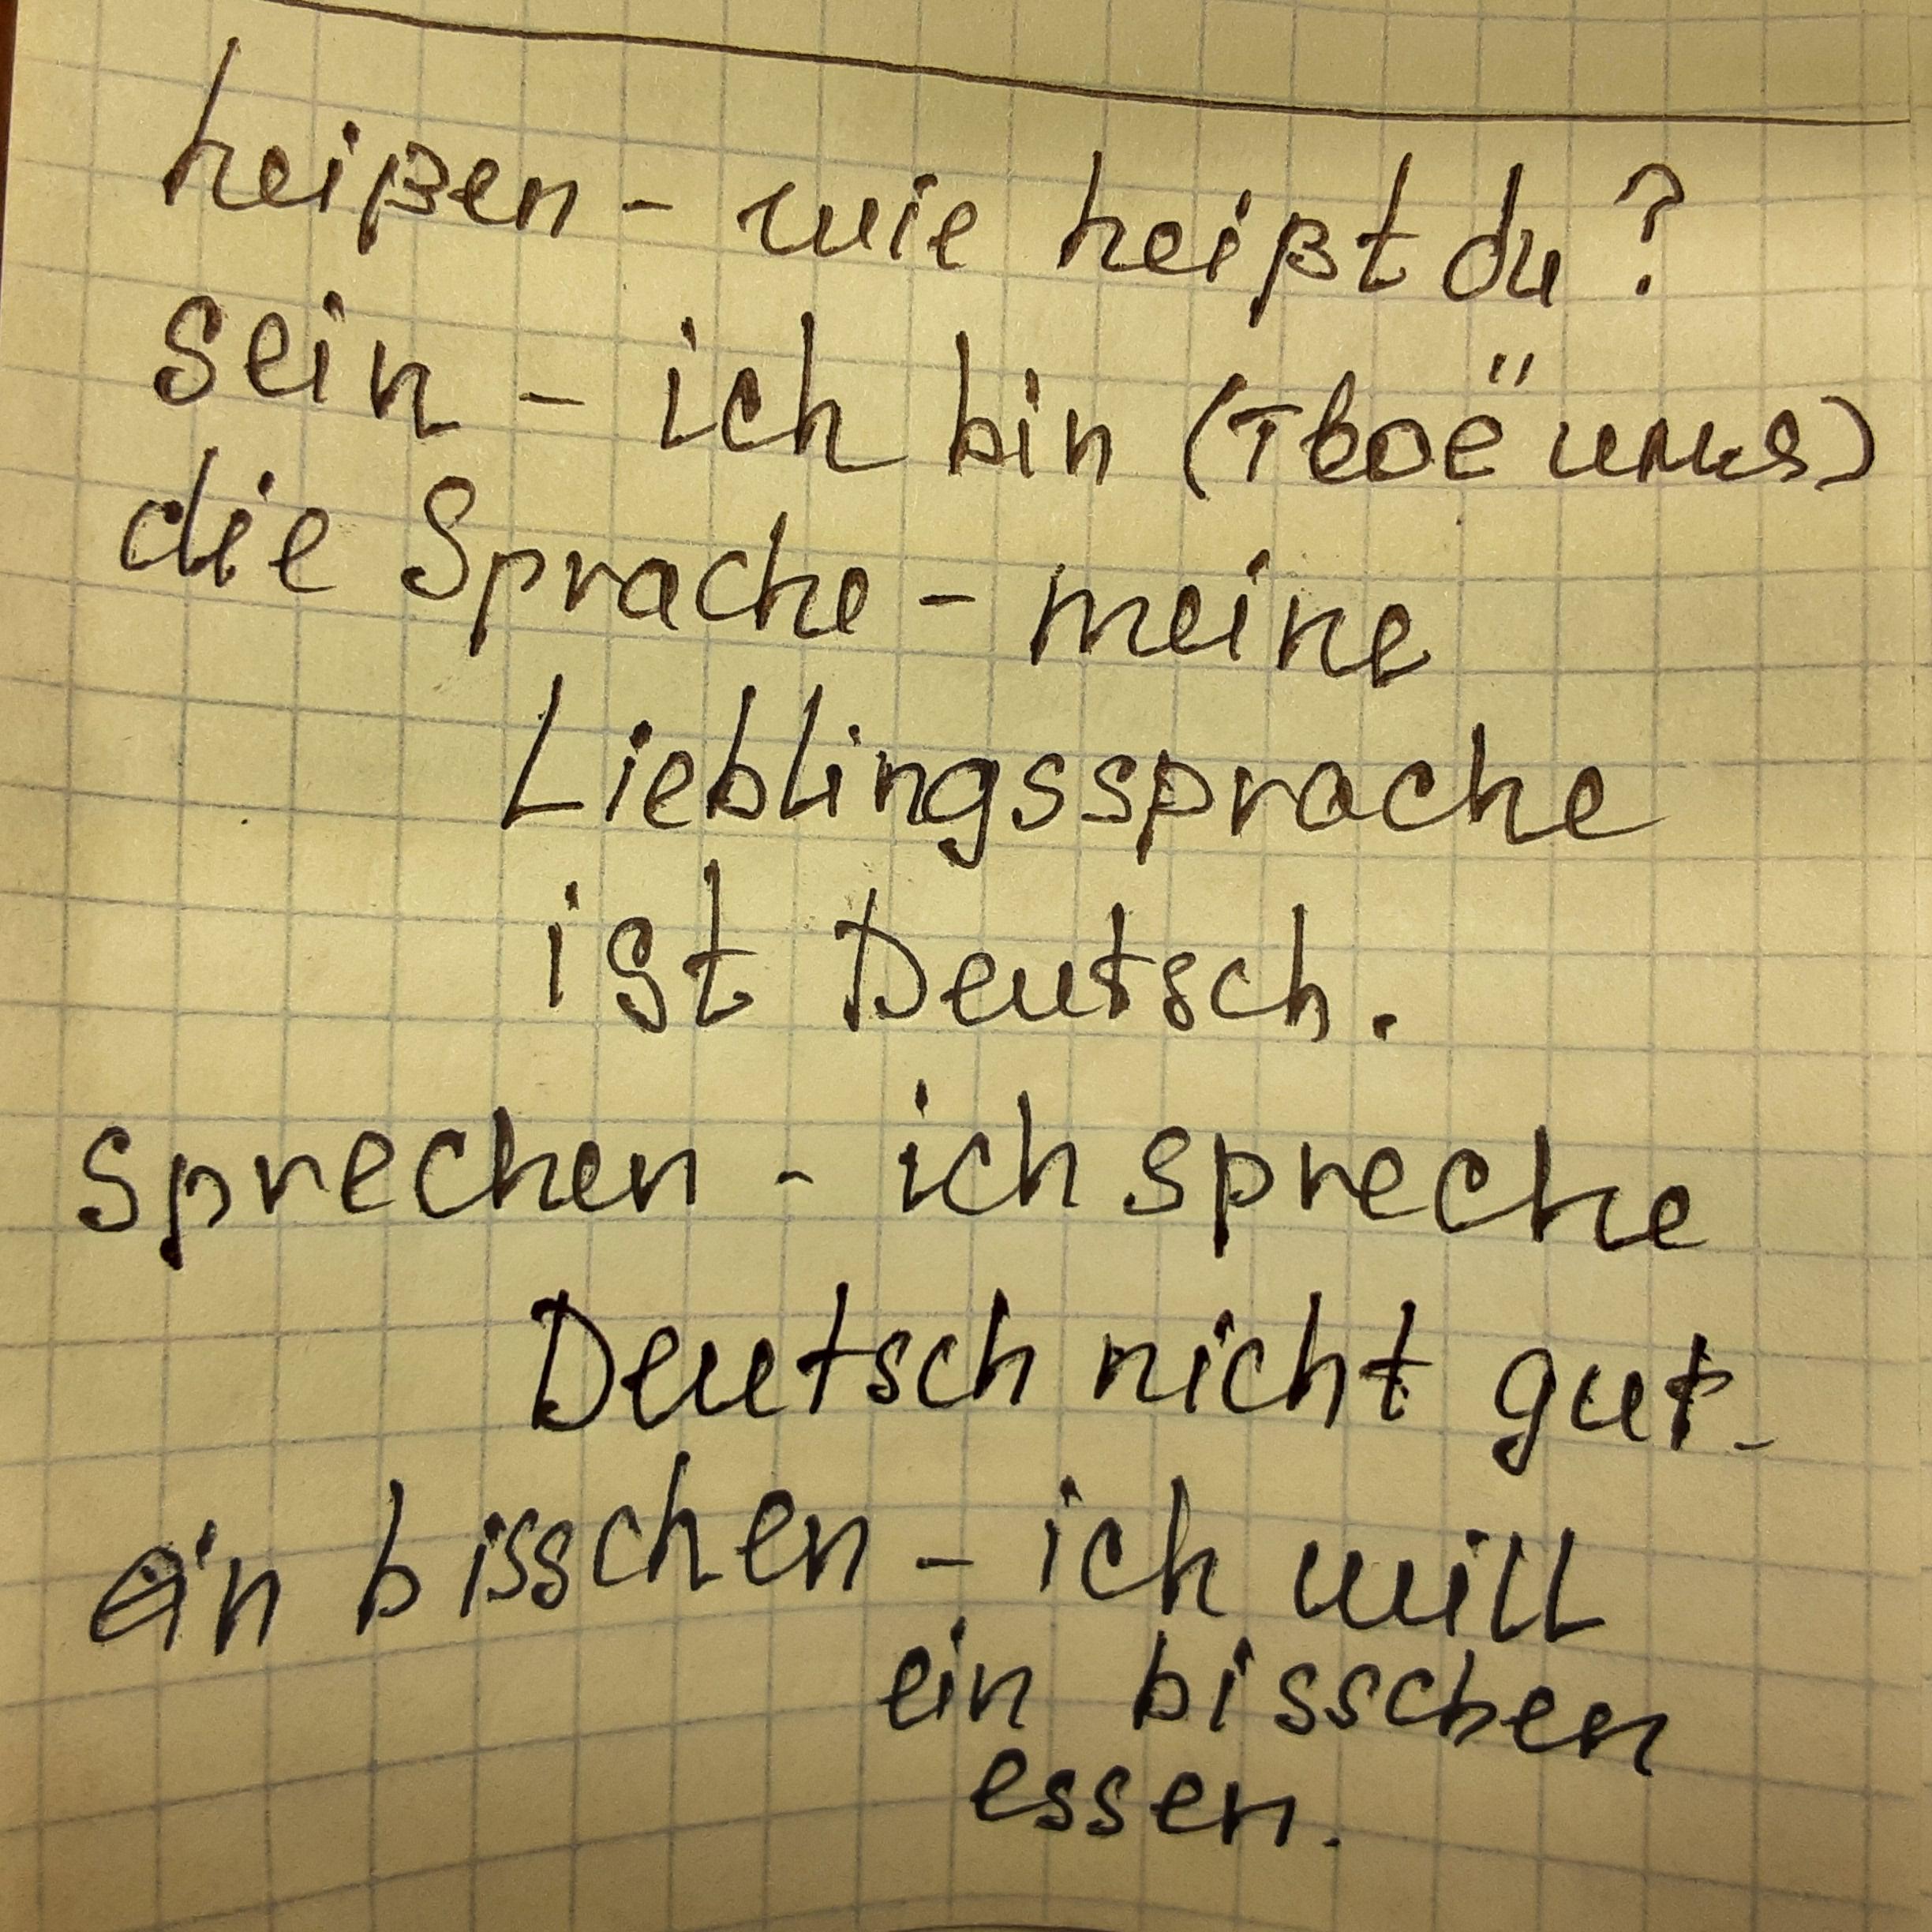 heißen - wie heißt du?
sein - ich bin (твоё имя)
die Sprache - meine
Lieblingssprache
ist Deutsch.
sprechen - ich spreche
Deutsch nicht gut.
ein bisschen - ich will
ein bisschen
essen.